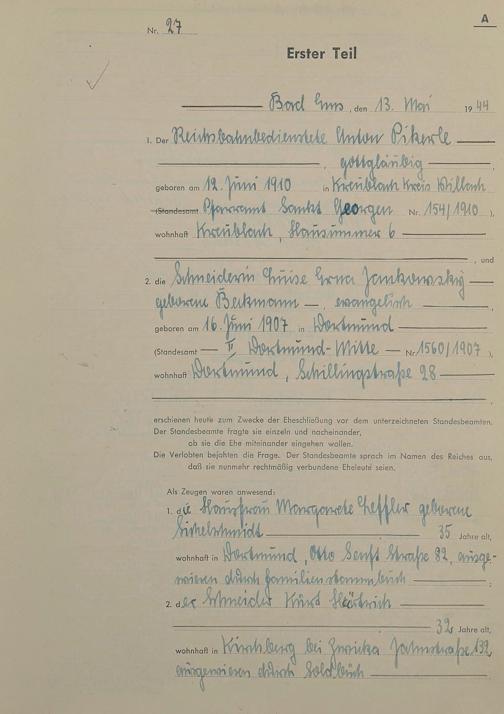 A
Nr. 27
Erster Teil
Bad Ems, den 13. Mai 1944
1. Der Reichsbahnbedienstete Anton Pikerle
, gottgläubig,
geboren am 12. Juni 1910 in Kreublach Kreis Villach
(Standesamt Pfarramt Sankt Georgen Nr. 154/1910),
wohnhaft Kreublach, Hausnummer 6
, und
2. die Schneiderin Luise Erna Jankowskÿ
geborene Beckmann, evangelisch,
geboren am 16. Juni 1907 in Dortmund
(Standesamt II Dortmund-Mitte Nr. 1560/1907),
wohnhaft Dortmund, Schillingstraße 28
erschienen heute zum Zwecke der Eheschließung vor dem unterzeichneten Standesbeamten.
Der Standesbeamte fragte sie einzeln und nacheinander,
ob sie die Ehe miteinander eingehen wollen.
Die Verlobten bejahten die Frage. Der Standesbeamte sprach im Namen des Reiches aus,
daß sie nunmehr rechtmäßig verbundene Eheleute seien.
Als Zeugen waren anwesend:
1. die Hausfrau Margarete Leffler geborene
Sichelschmidt 35 Jahre alt,
wohnhaft in Dortmund, Otto Senft Straße 82, ausge-
wiesen durch Familienstammbuch;
2. der Schneider Kurt Härtrich
32 Jahre alt,
wohnhaft in Kirchberg bei Zwickau Jahnstraße 132,
ausgewiesen durch Soldbuch